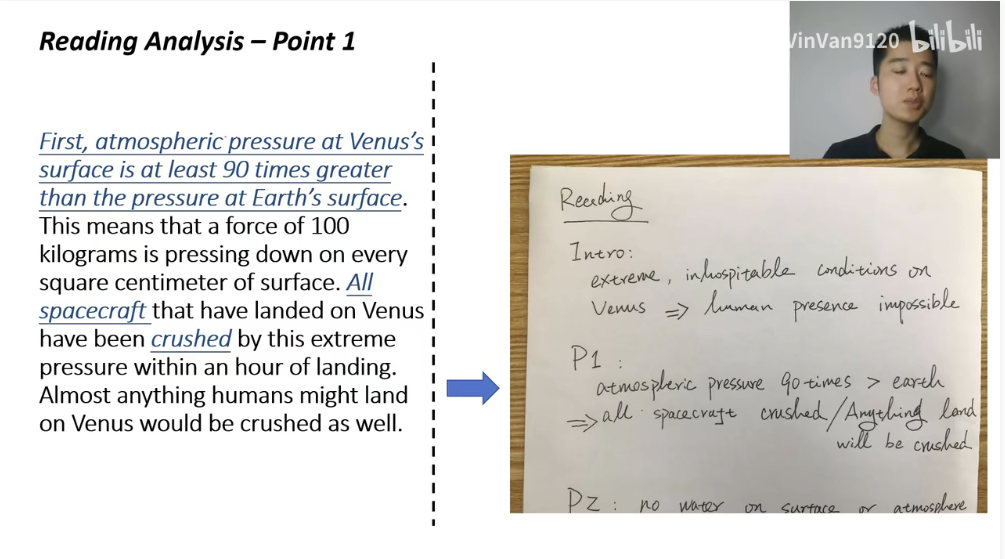 Reading Analysis – Point 1
VinVan9120 bilibili
First, atmospheric pressure at Venus's
surface is at least 90 times greater
than the pressure at Earth's surface.
This means that a force of 100
kilograms is pressing down on every
square centimeter of surface. All
spacecraft that have landed on Venus
have been crushed by this extreme
pressure within an hour of landing.
Almost anything humans might land
on Venus would be crushed as well.
Reading
Intro:
extreme, inhospitable conditions on
Venus ⇒ human presence impossible
P1 :
atmospheric pressure 90 times > earth
⇒ all spacecraft crushed / Anything land
will be crushed
P2 : no water on surface or atmosphere